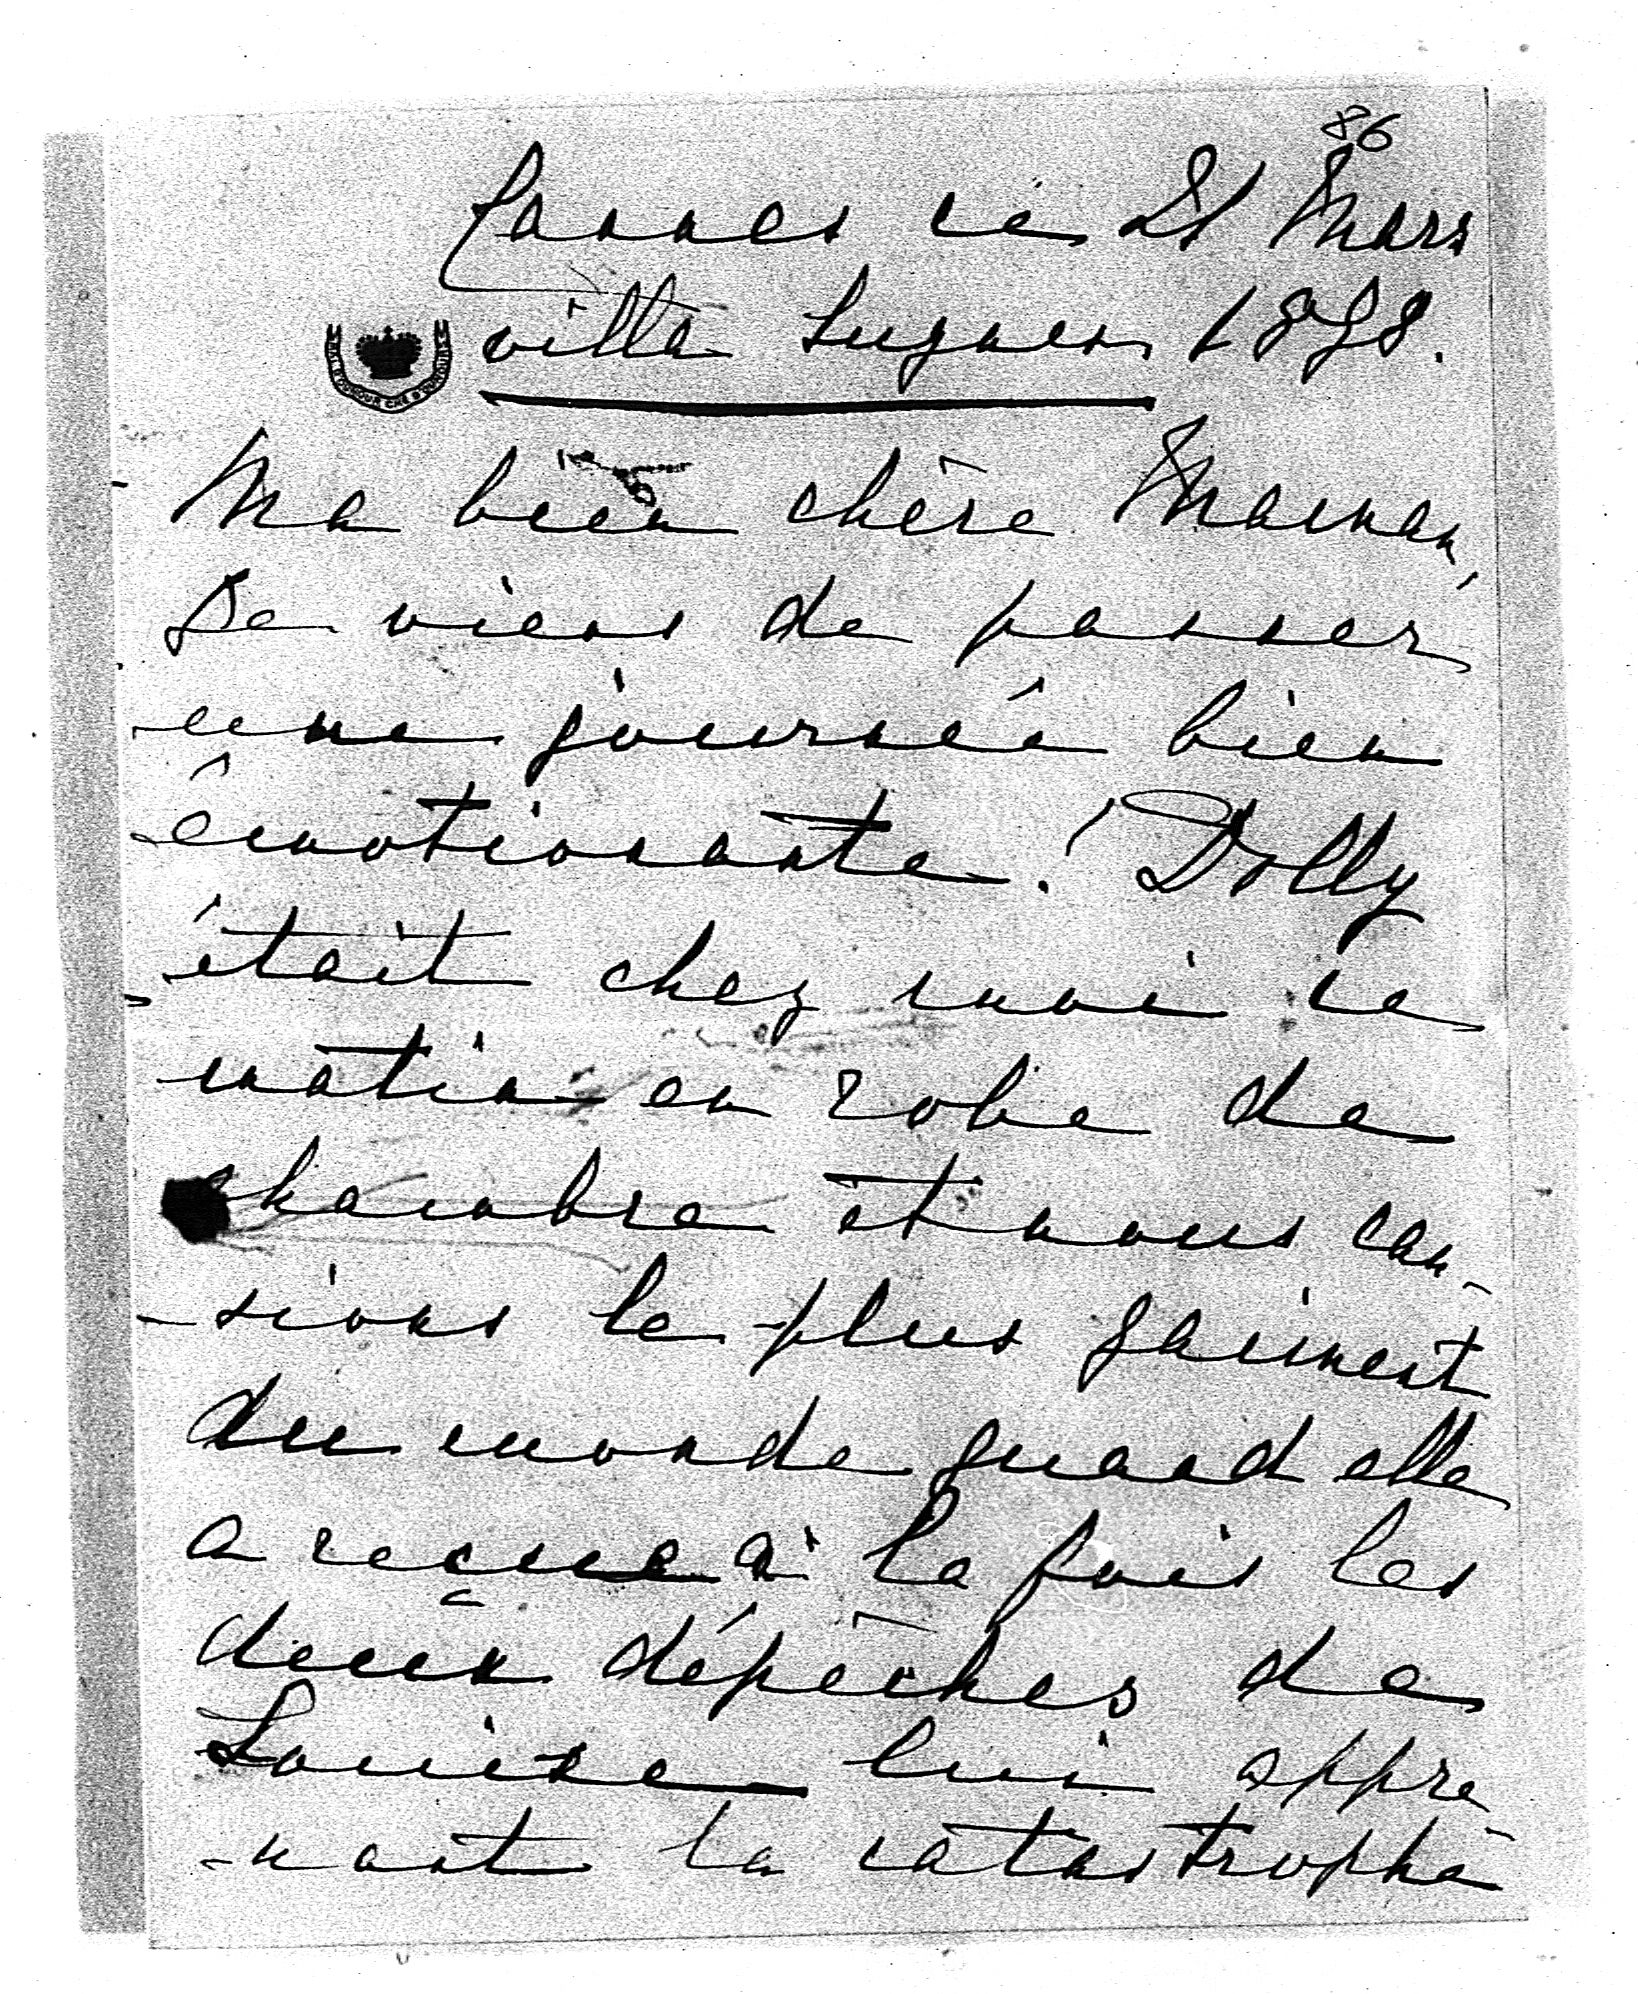 86
Cannes ce 21 Mars
villa 1898.
Ma bien chère Maman,
Je viens de passer
une journée bien
émotionante! Dolly
était chez moi ce
matin en robe de
chambre et nous cau-
-sions le plus gaiment
du monde quand elle
a reçue à la fois les
deux dépêches de
Louise lui appre
-nant la catastrophe